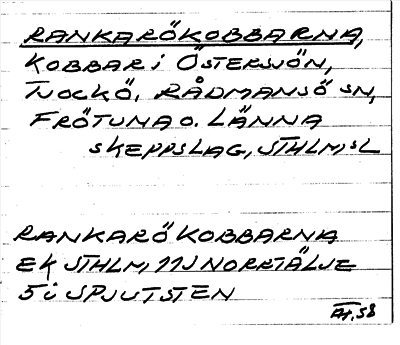 RANKARÖKOBBARNA,
KOBBAR i ÖSTERSJÖN,
TJOCKÖ, RÅDMANSÖ SN,
FRÖTUNA O. LÄNNA
SKEPPSLAG, STHLM,S L
RANKARÖKOBBARNA
EK STHLM, 11J NORRTÄLJE
5 i SPJUTSTEN